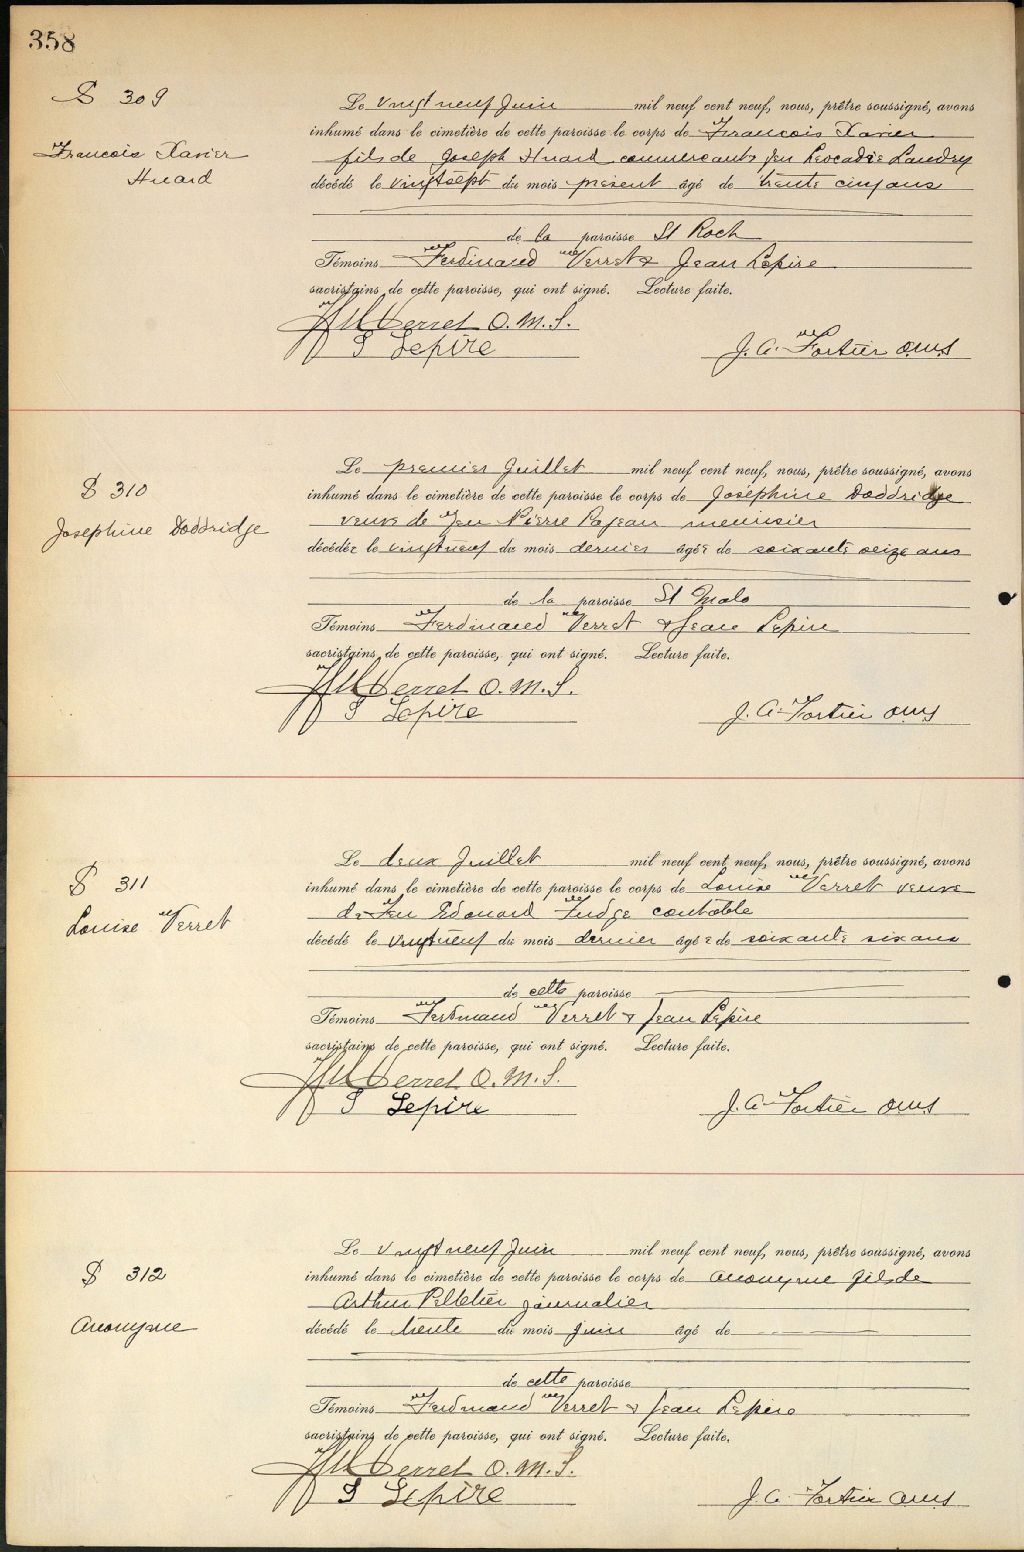 358
S 309
François Xavier
Huard
Le vingt neuf Juin mil neuf cent neuf, nous, prêtre soussigné, avons
inhumé dans le cimetière de cette paroisse le corps de François Xavier
fils de Joseph Huard commercant & feu Leocadie Landry
décédé le vingtsept du mois présent âgé de trente cinq ans
de la paroisse St Roch
Témoins Ferdinand Verret & Jean Lépire
sacristains de cette paroisse, qui ont signé. Lecture faite.
Verret O.M.I.
J Lepire
J. A. Fortier omi
S 310
Josephine Doddridge
Le premier Juillet mil neuf cent neuf, nous, prêtre soussigné, avons
inhumé dans le cimetière de cette paroisse le corps de Joséphine Doddridge
veuve de feu Pierre Pajeau menuisier
décédée le vingt neuf du mois dernier âgée de soixante seize ans
de la paroisse St Malo
Témoins Ferdinand Verret & Jean Lepire
sacristains de cette paroisse, qui ont signé. Lecture faite.
Verret O.M.I.
J Lepire
J. A. Fortier omi
S 311
Louise Verret
Le deux Juillet mil neuf cent neuf, nous, prêtre soussigné, avons
inhumé dans le cimetière de cette paroisse le corps de Louise Verret veuve
de feu Edouard Fudge contable
décédé le vingt neuf du mois dernier âgée de soixante six ans
de cette paroisse
Témoins Ferdinand Verret & Jean Lépire
sacristains de cette paroisse, qui ont signé. Lecture faite.
Verret O.M.I.
J Lepire
J. A. Fortier omi
S 312
Anonyme
Le vingt neuf Juin mil neuf cent neuf, nous, prêtre soussigné, avons
inhumé dans le cimetière de cette paroisse le corps de anonyme fils de
Arthur Pelletier journalier
décédé le trente du mois juin âgé de
de cette paroisse
Témoins Ferdinand Verret & Jean Lepire
sacristains de cette paroisse, qui ont signé. Lecture faite.
Verret O.M.I.
J Lepire
J. A. Fortier omi